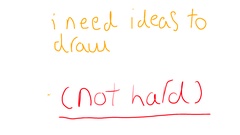 i need ideas to
draw
(not hard)